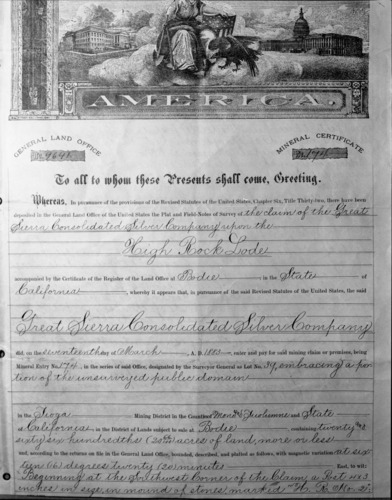 AMERICA.
GENERAL LAND OFFICE
MINERAL CERTIFICATE
To all to whom these Presents shall come, Greeting.
Whereas, In pursuance of the provisions of the Revised Statutes of the United States, Chapter Six, Title Thirty-two, there have been
deposited in the General Land Office of the United States the Plat and Field-Notes of Survey of the claim of the Great
Sierra Consolidated Silver Company upon the
High Rock Lode
accompanied by the Certificate of the Register of the Land Office at Bodie in the State of
California, whereby it appears that, in pursuance of the said Revised Statutes of the United States, the said
Great Sierra Consolidated Silver Company
did, on the seventeenth day of March, A. D. 1883, enter and pay for said mining claim or premises, being
Mineral Entry No. 174, in the series of said Office, designated by the Surveyor General as Lot No. 39, embracing a por
tion of the unsurveyed public domain
in the Tioga Mining District in the Counties of Mono & Tuolumne and State
of California in the District of Lands subject to sale at Bodie containing twenty &
sixty six hundredths acres of land, more or less
and, according to the returns on file in the General Land Office, bounded, described, and platted as follows, with magnetic variation at six
teen degrees twenty minutes East, to wit:
Beginning at the Southwest Corner of the Claim, a Post
inches in size, in mound of stones, marked